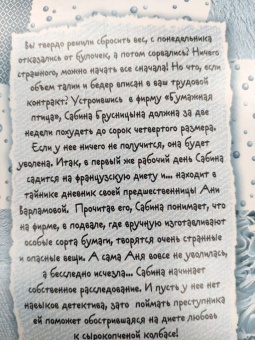 Вы твердо решили сбросить вес, с понедельника
отказались от булочек, а потом сорвались? Ничего
страшного, можно начать все сначала! Но что, если
объем талии и бедер вписан в ваш трудовой
контракт? Устроившись в фирму «Бумажная
птица», Сабина Брусницына должна за две
недели похудеть до сорок четвертого размера.
Если у нее ничего не получится, она будет
уволена. Итак, в первый же рабочий день Сабина
садится на французскую диету и... находит в
тайнике дневник своей предшественницы Ани
Варламовой. Прочитав его, Сабина понимает, что
на фирме, в подвале, где вручную изготавливают
особые сорта бумаги, творятся очень странные
и опасные вещи. А сама Аня вовсе не уволилась,
а бесследно исчезла... Сабина начинает
собственное расследование. И пусть у нее нет
навыков детектива, зато поймать преступника
ей поможет обострившаяся на диете любовь
к сырокопченой колбасе!